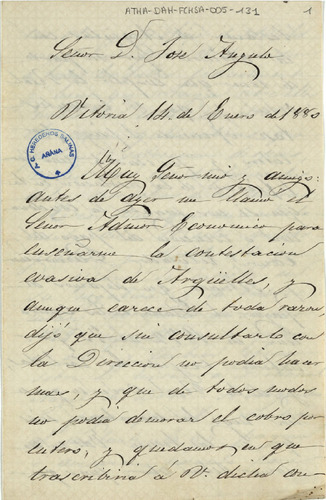 ATHA-DAH-FCHSA-005-131
1
Señor D. Jose Angulo
Vitoria 14 de Enero de 1880
Muy Señor mio y amigo:
antes de ayer me llamó el
Señor Admor Economico para
enseñarme la contestacion
evasiva de Argüelles, y
aunque carece de toda razon,
dijó que sin consultarlo con
la Direccion no podia hacer
mas, y que de todos modos
no podia demorar el cobro por
entero, y quedamos en que
trascribiria á V. dicha con-
HEREDEROS SALINAS
AÑANA